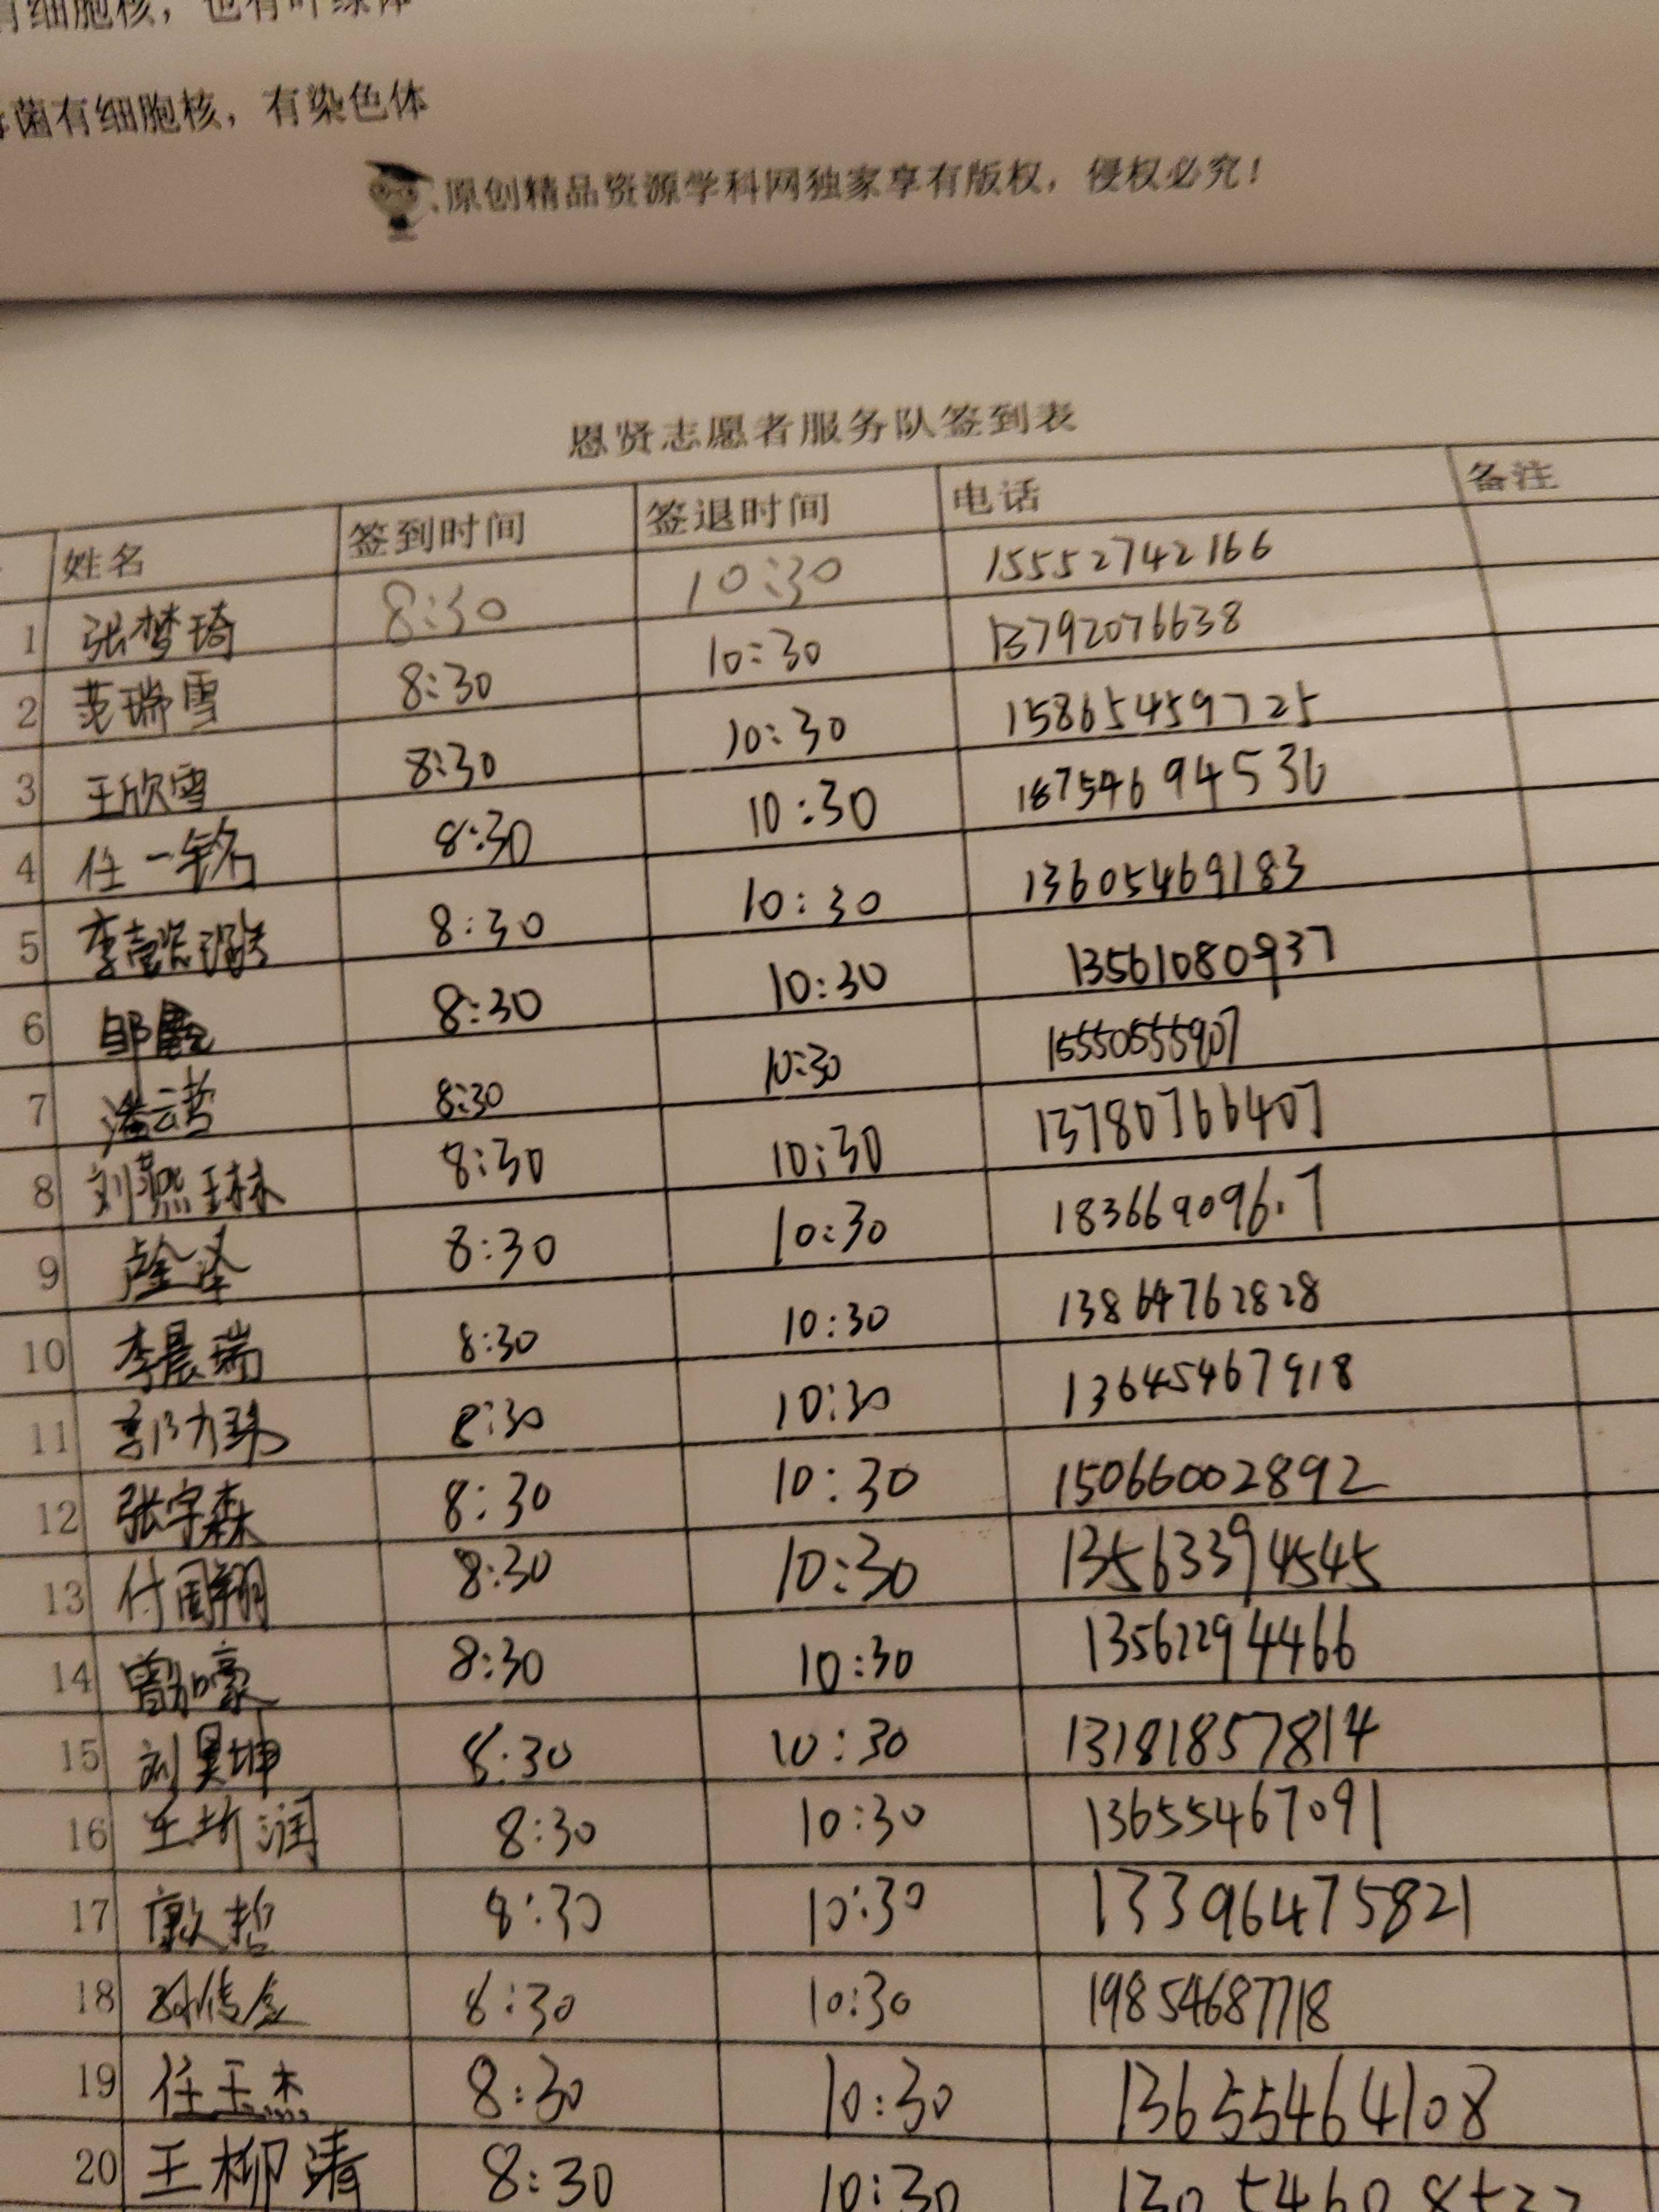 有细胞核，也有叶绿体
菌有细胞核，有染色体
原创精品资源学科网独家享有版权，侵权必究！
恩贤志愿者服务队签到表
姓名 签到时间 签退时间 电话 备注
1 张梦琦 8:30 10:30 15552742166
2 范瑞雪 8:30 10:30 13792076638
3 王欣雪 8:30 10:30 15865459725
4 任一铭 8:30 10:30 18754694536
5 李 8:30 10:30 13605469183
6 邹 8:30 10:30 13561080937
7 潘云诺 8:30 10:30 15550555907
8 刘燕琳 8:30 10:30 13780766407
9 8:30 10:30 183669096.7
10 李晨瑞 8:30 10:30 13864762828
11 郭力玮 8:30 10:30 13645467918
12 张宇森 8:30 10:30 15066002892
13 付周翔 8:30 10:30 13563394545
14 曾加豪 8:30 10:30 13562294466
15 刘昊坤 8:30 10:30 13181857814
16 王圻润 8:30 10:30 13655467091
17 哲 8:30 10:30 13396475821
18 8:30 10:30 19854687718
19 任玉杰 8:30 10:30 13655464108
20 王柳清 8:30 10:30